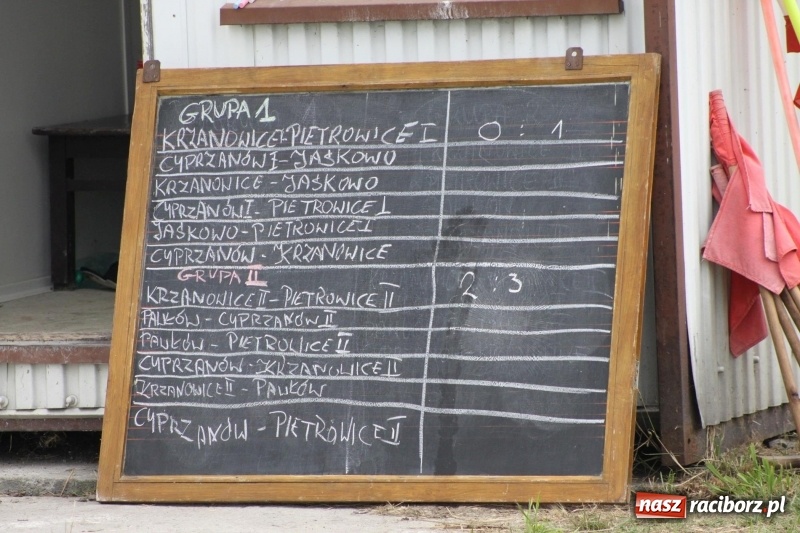 GRUPA 1
KRZANOWICE - PIETROWICE I 0 : 1
CYPRZANÓW I - JAŚKOWO
KRZANOWICE - JAŚKOWO
CYPRZANÓW I - PIETROWICE I
JAŚKOWO - PIETROWICE I
CYPRZANÓW - KRZANOWICE
GRUPA II
KRZANOWICE II - PIETROWICE II 2 : 3
PAWŁÓW - CYPRZANÓW II
PAWŁÓW - PIETROWICE II
CYPRZANÓW - KRZANOWICE II
KRZANOWICE II - PAWŁÓW
CYPRZANÓW - PIETROWICE II
nasz raciborz.pl